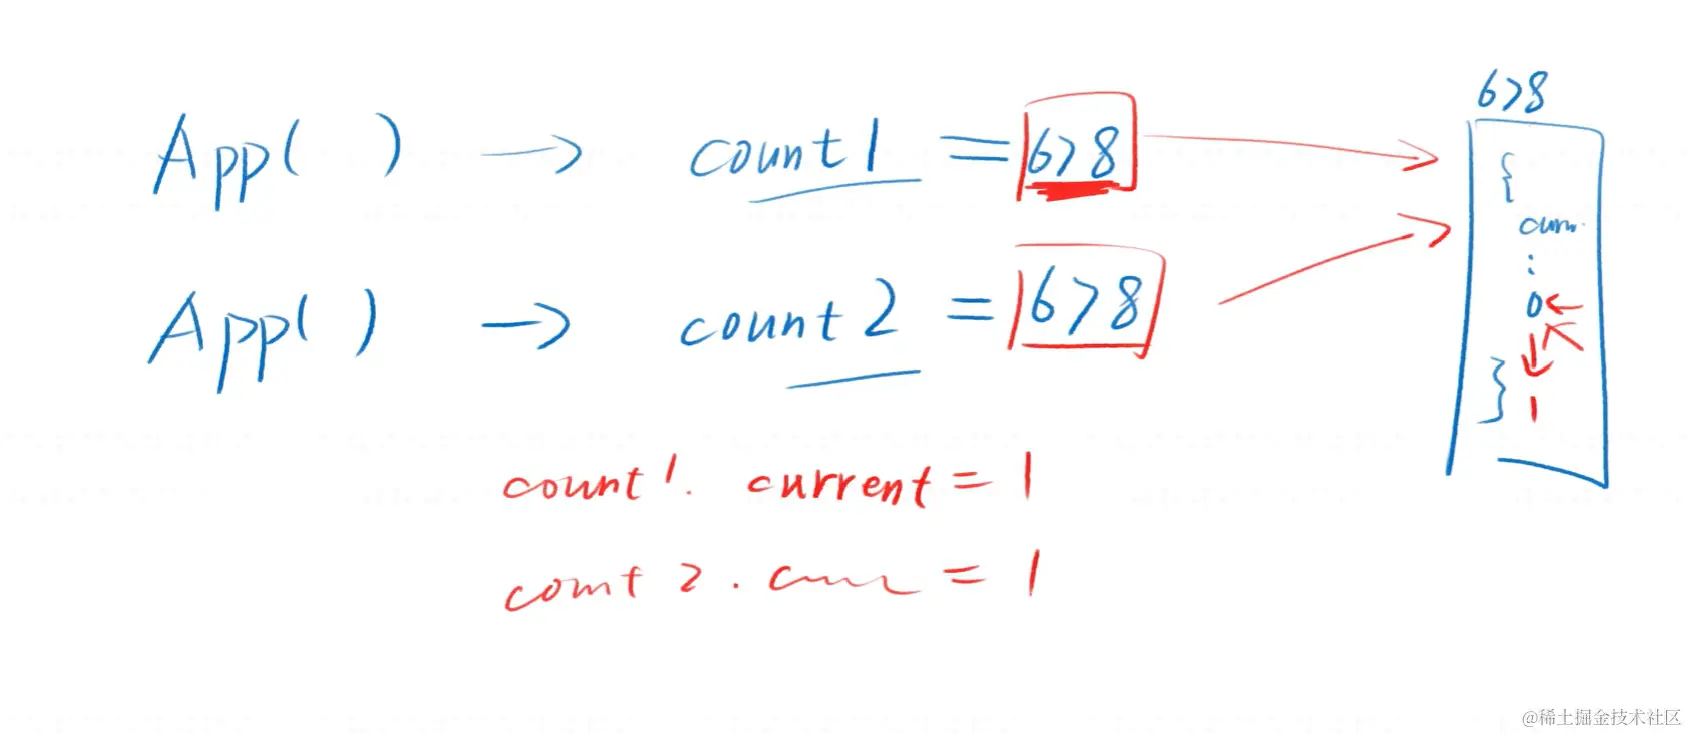 678
App( ) → count1 = 678
{
curr.
:
0
1
}
App( ) → count2 = 678
count1. current = 1
count 2. curr = 1
@稀土掘金技术社区